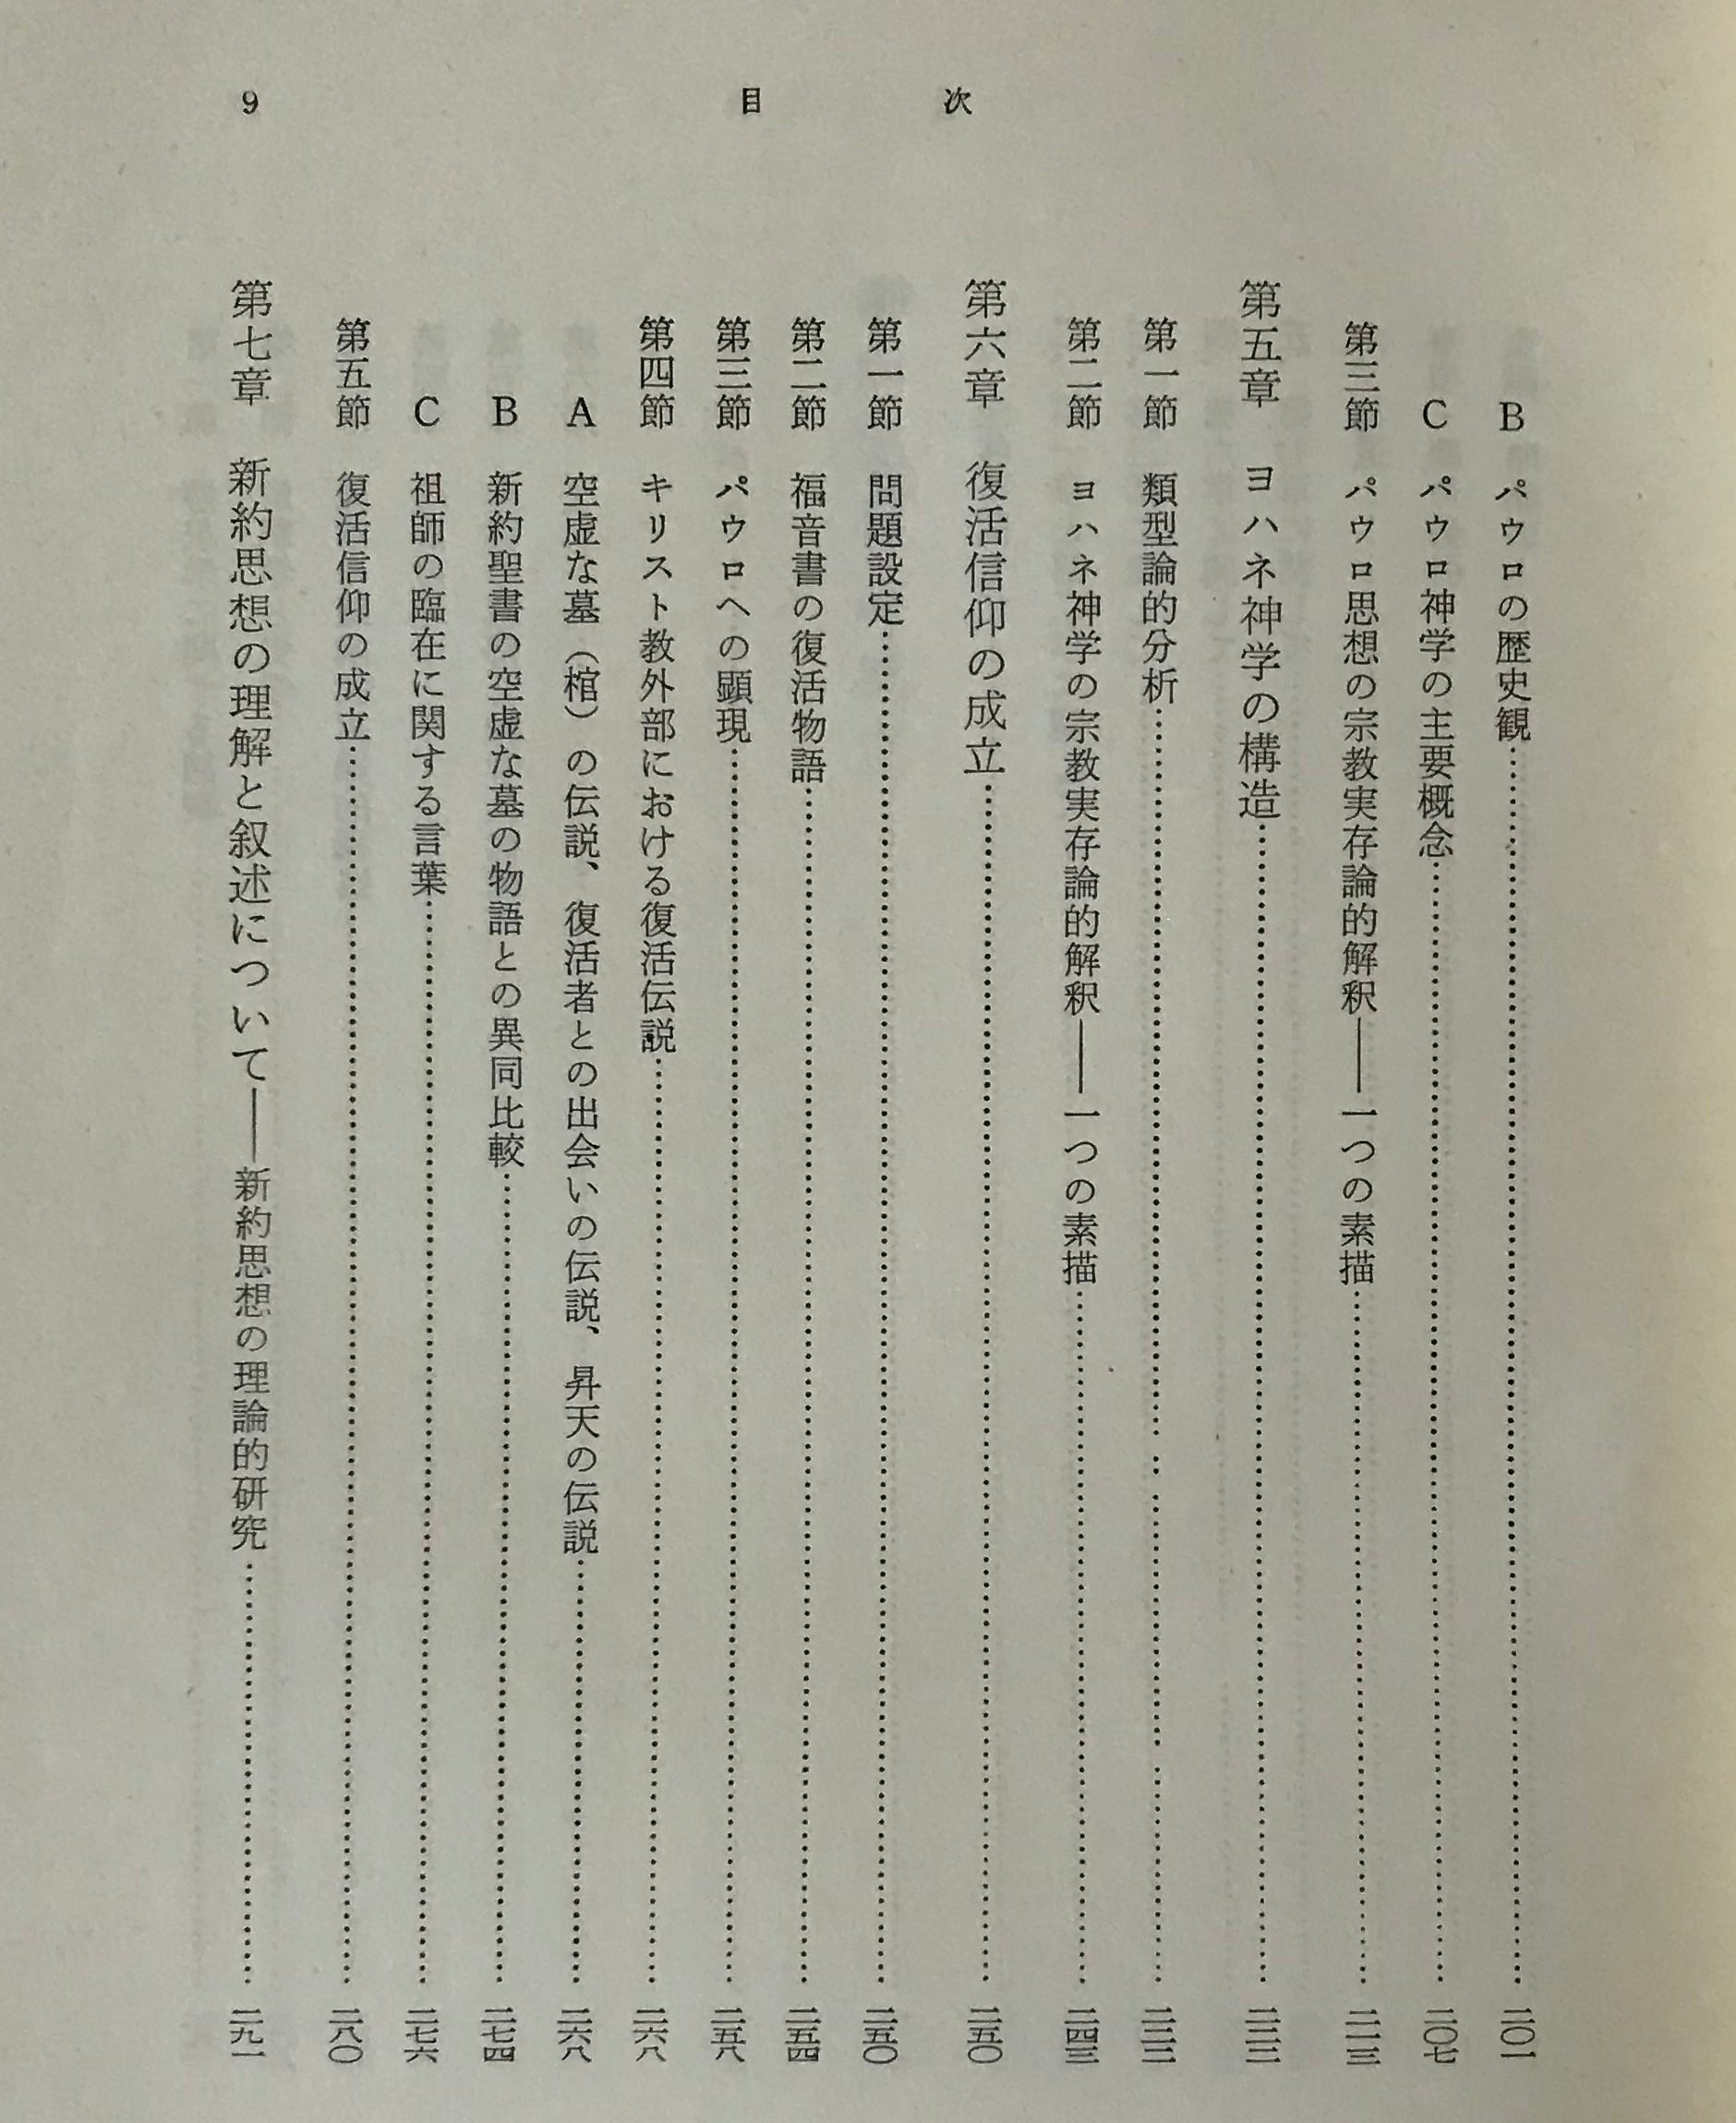 9 目次
B パウロの歴史観……二〇一
C パウロ神学の主要概念……二〇七
第三節 パウロ思想の宗教実存論的解釈――一つの素描……二一三
第五章 ヨハネ神学の構造……
第一節 類型論的分析……
第二節 ヨハネ神学の宗教実存論的解釈――一つの素描……二四三
第六章 復活信仰の成立……二五〇
第一節 問題設定……二五〇
第二節 福音書の復活物語……二五四
第三節 パウロへの顕現……二五八
第四節 キリスト教外部における復活伝説……二六八
A 空虚な墓（棺）の伝説、復活者との出会いの伝説、昇天の伝説……二六八
B 新約聖書の空虚な墓の物語との異同比較……二七四
C 祖師の臨在に関する言葉……二七六
第五節 復活信仰の成立……二八〇
第七章 新約思想の理解と叙述について――新約思想の理論的研究……二九一